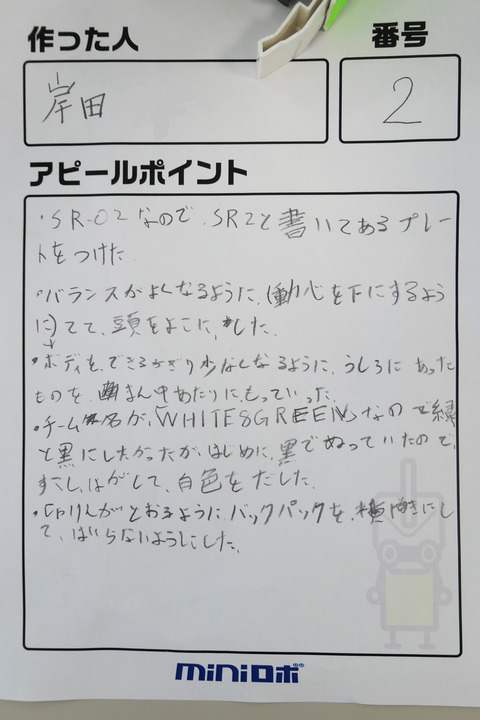 作った人
番号
岸田
2
アピールポイント
・SR-02なので、SR2と書いてあるプレー
トをつけた
・バランスがよくなるように、(動心を下にするよう
に)てて、頭をよこに、した。
・ボディを、できるかぎり少なくなるように、うしろにあった
ものを、まん中あたりに、もっていった。
・チーム名が、「WHITE&GREEN」なので緑
と黒にしたかったが、はじめに、黒でぬっていたので、
すこし、はがして、白色をだした。
・がとおるように、バックパックを、横向きにし
て、ばらないようにした。
miniロボ